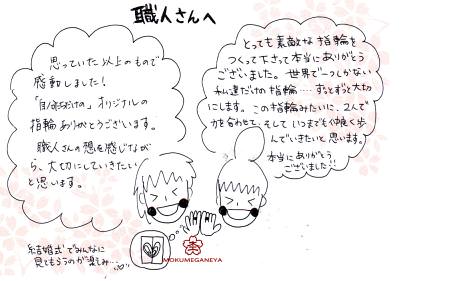 職人さんへ
思っていた以上のもので
感動しました！
「自分たちだけの」オリジナルの
指輪ありがとうございます。
職人さんの想を感じなが
ら、大切にしていきたい
と思います。
とっても素敵な指輪を
つくって下さって本当にありがとう
ございました。世界で一つしかない
私達だけの指輪……ずっとずっと大切
にします。この指輪みたいに、2人で
力を合わせて、そしていつまでも仲良く歩
んでいきたいと思います。
本当にありがとう
ございました!!
結婚式でみんなに
見てもらうのが楽しみ…
MOKUMEGANEYA